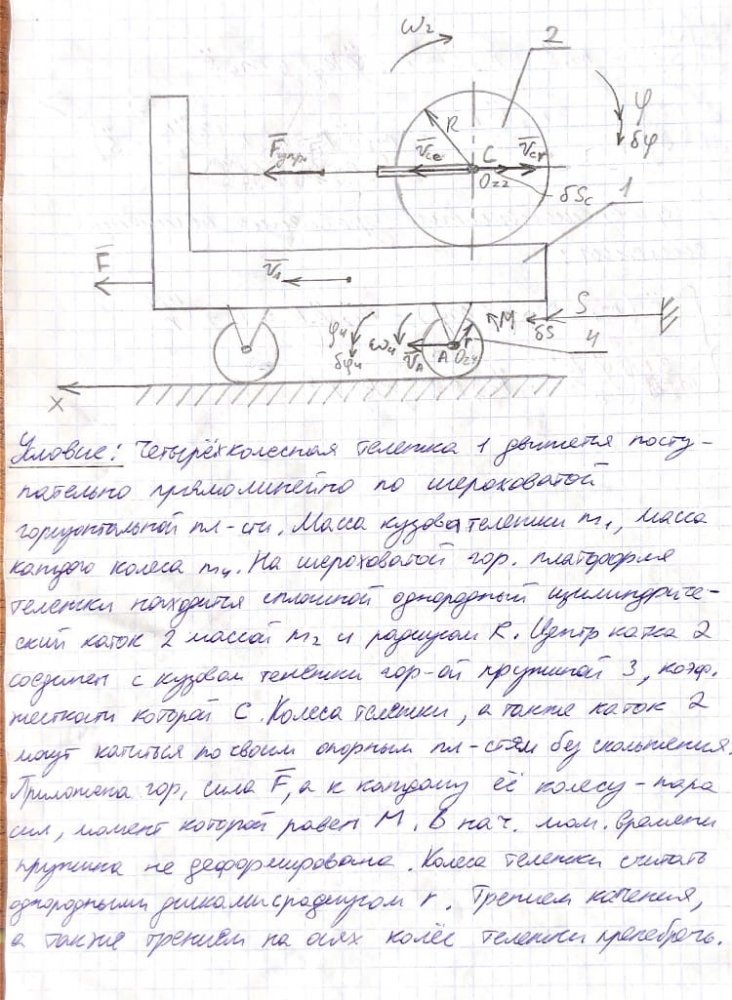 ω₂
2
R
φ
δφ
F̄упр
V̄ce
C
V̄cr
O₂₂
δSc
1
F̄
V̄A
φ₄
δφ₄
ω₄
V̄A
A
Oz₄
r
M
δS
S
4
x
Условие: Четырёхколесная тележка 1 движется посту-
пательно прямолинейно по шероховатой
горизонтальной пл-сти. Масса кузова тележки m₁, масса
каждого колеса m₄. На шероховатой гор. платформе
тележки находится сплошной однородный цилиндриче-
ский каток 2 массой m₂ и радиусом R. Центр катка 2
соединен с кузовом тележки гор-ой пружиной 3, коэф.
жесткости которой C. Колеса тележки, а также каток 2
могут катиться по своим опорным пл-стям без скольжения.
Приложена гор. сила F̄, а к каждому её колесу - пара
сил, момент которой равен M. В нач. мом. времени
пружина не деформирована. Колеса тележки считать
однородными дисками с радиусом r. Трением качения,
а также трением на осях колёс тележки пренебречь.